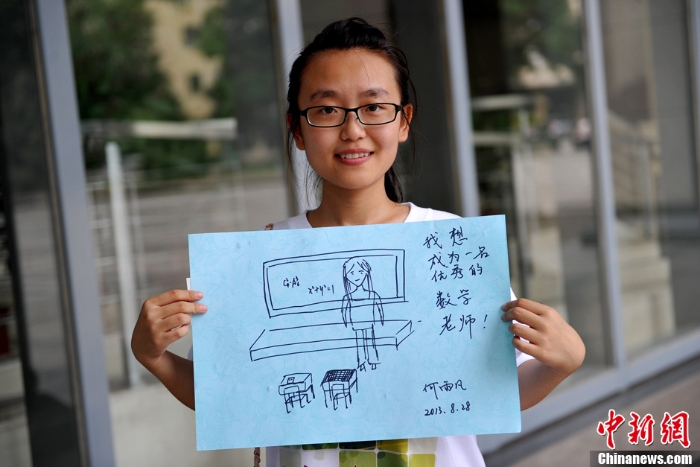 我想
成为一名
优秀的
数学
老师!
x²+y²=1
何雨凡
2013.8.28
中新网
Chinanews.com